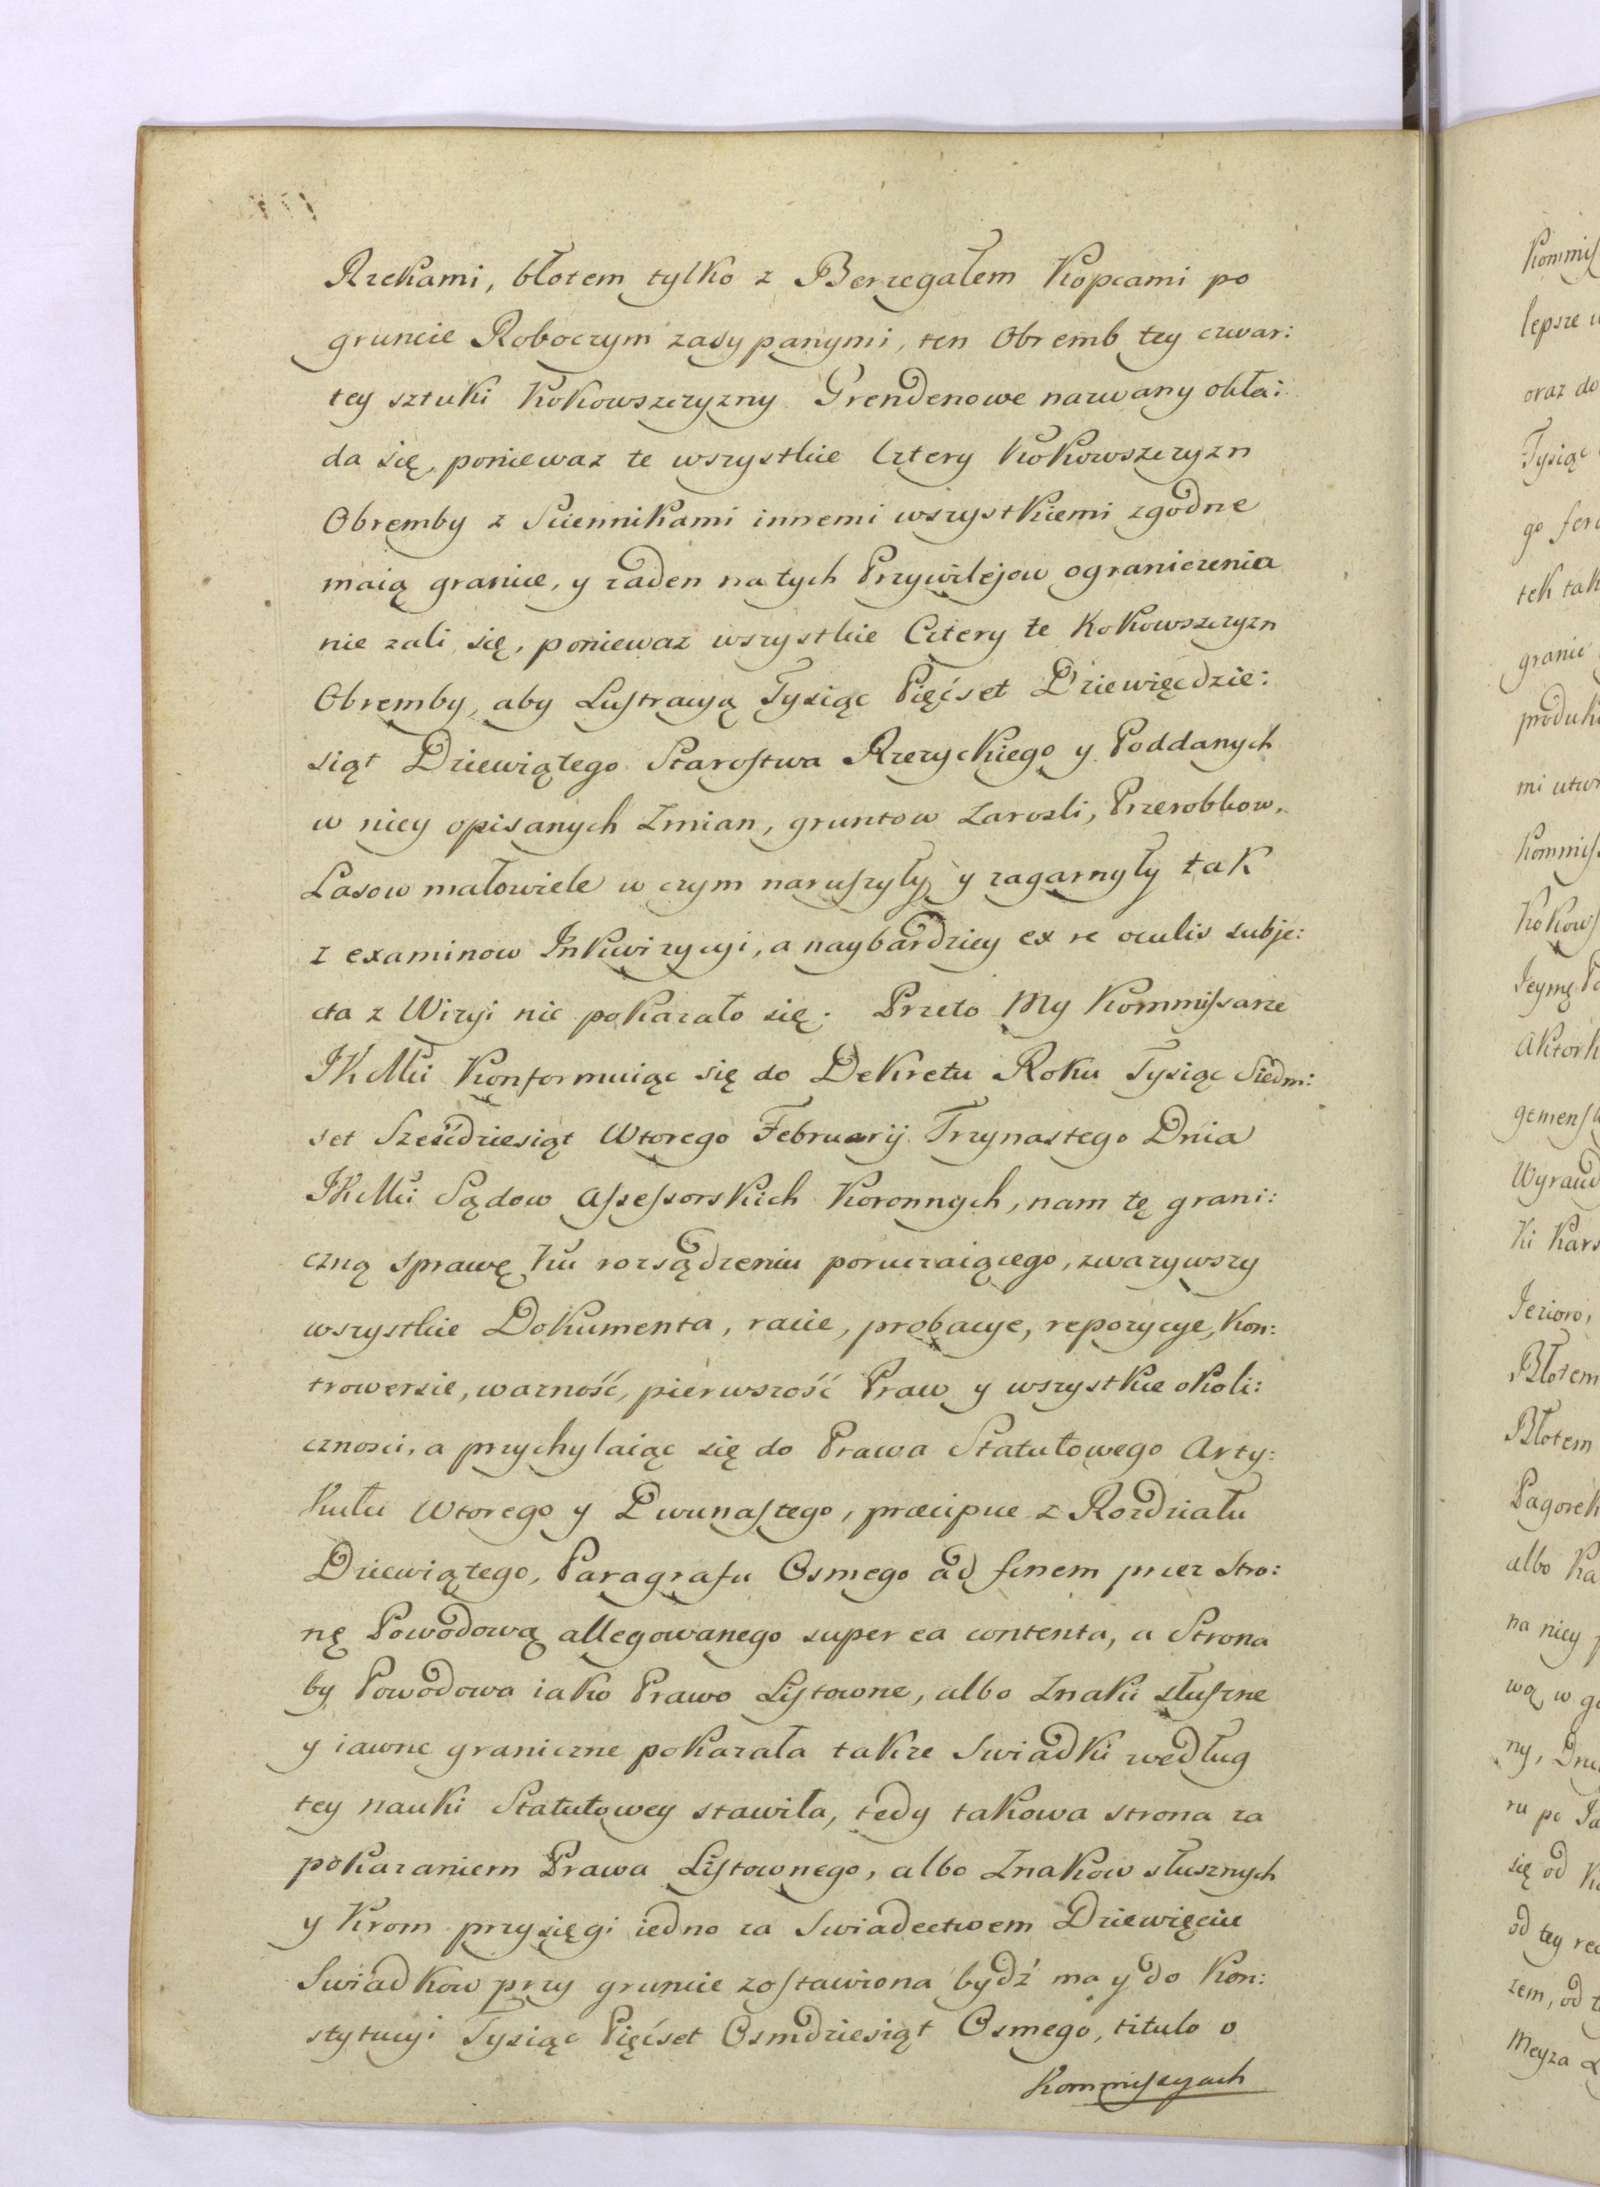 Rzekami, błotem tylko z Berzegałem Kopcami po
gruncie Roboczym zasypanymi, ten Obremb tey czwar:
tey sztuki Kokowszczyzny Grendenowe nazwany okła:
da się, poniewaz te wszystkie Cztery Kokowszczyzn
Obremby z Sciennikami innemi wszystkiemi zgodne
maią granice, y zaden na tych Przywilejow ograniczenia
nie zali się, poniewaz wszystkie Cztery te Kokowszczyzn
Obremby, aby Lustracyą Tysiąc Pięćset Dziewięcdzie:
siąt Dziewiątego Starostwa Rzezyckiego y Poddanych
w niey opisanych Zmian, gruntow Zarosli, Przerobkow,
Lasow małowiele w czym naruszyły y zagarnyły tak
z examinow Inkwizycyi, a naybardziey ex re oculis subje:
cta z Wizyi nie pokazało się. Przeto My Kommissarze
JKMci Konformuiąc się do Dekretu Roku Tysiąc Siedm:
set Sześćdziesiąt Wtorego Februarij Trzynastego Dnia
JKMci Sądow Assessorskich Koronnych, nam tę grani:
czną sprawę ku rozsądzeniu poruczaiącego, zwazywszy
wszystkie Dokumenta, racie, probacye, repozycye, Kon:
trowersie, wazność, pierwszość Praw y wszystkie okoli:
cznosci, a przychylaiąc się do Prawa Statutowego Arty:
kułu Wtorego y Dwunastego, præcipue z Rozdziału
Dziewiątego, Paragrafu Osmego ad finem przez Stro:
nę Powodową allegowanego super ea contenta, a Strona
by Powodowa iako Prawo Listowne, albo Znaki słuszne
y iawne graniczne pokazała takze Swiadki według
tey nauki Statutowey stawiła, tedy takowa strona za
pokazaniem Prawa Listownego, albo Znakow słusznych
y Krom przysięgi iedno za Swiadectwem Dziewięciu
Swiadkow przy gruncie zostawiona bydź ma y do Kon:
stytucyi Tysiąc Pięćset Osmdziesiąt Osmego, titulo o
Kommissyach
Kommiss
lepsze
oraz do
Tysiąc
tek tak
granic
mi
Aktork
Jezioro,
Błotem
Błotem
Pagorek
albo
na niey
wą, w
ny,
ru po
się od
od tey
zem, od